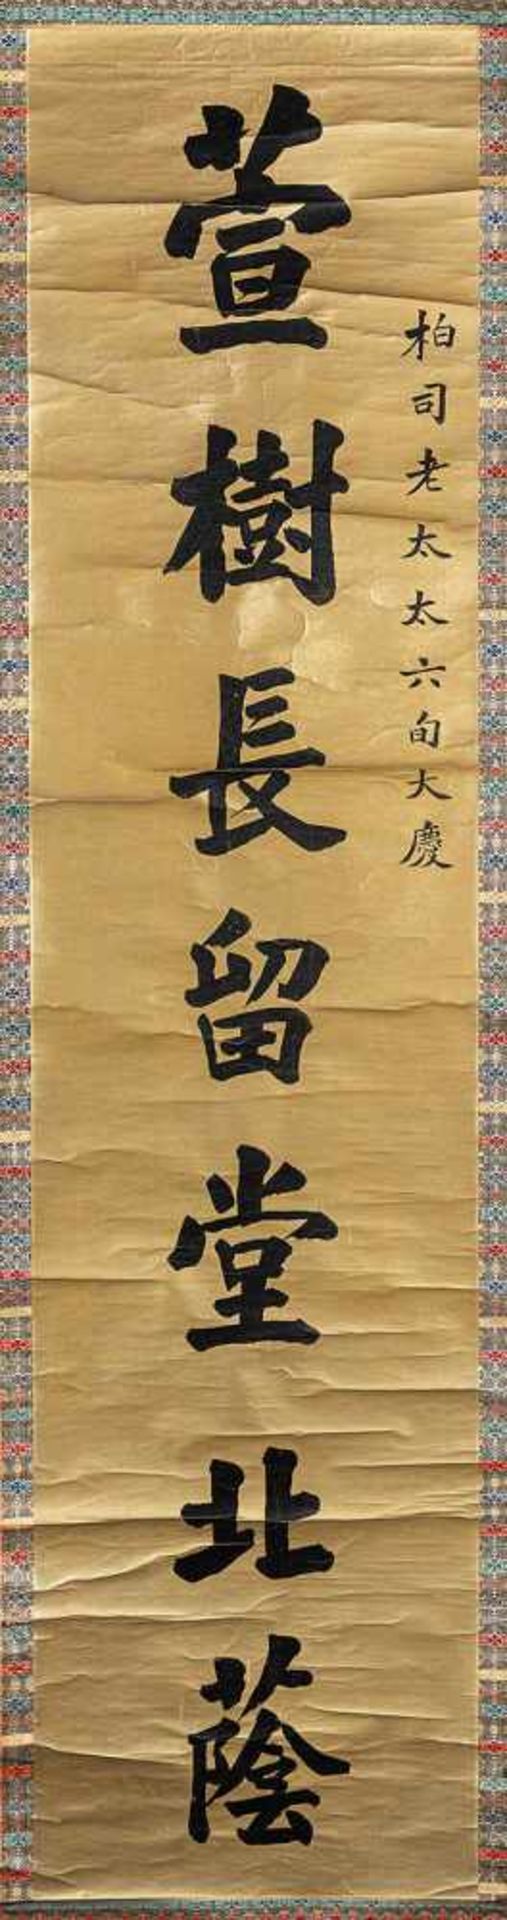 柏司老太太六旬大慶
萱樹長留堂北蔭